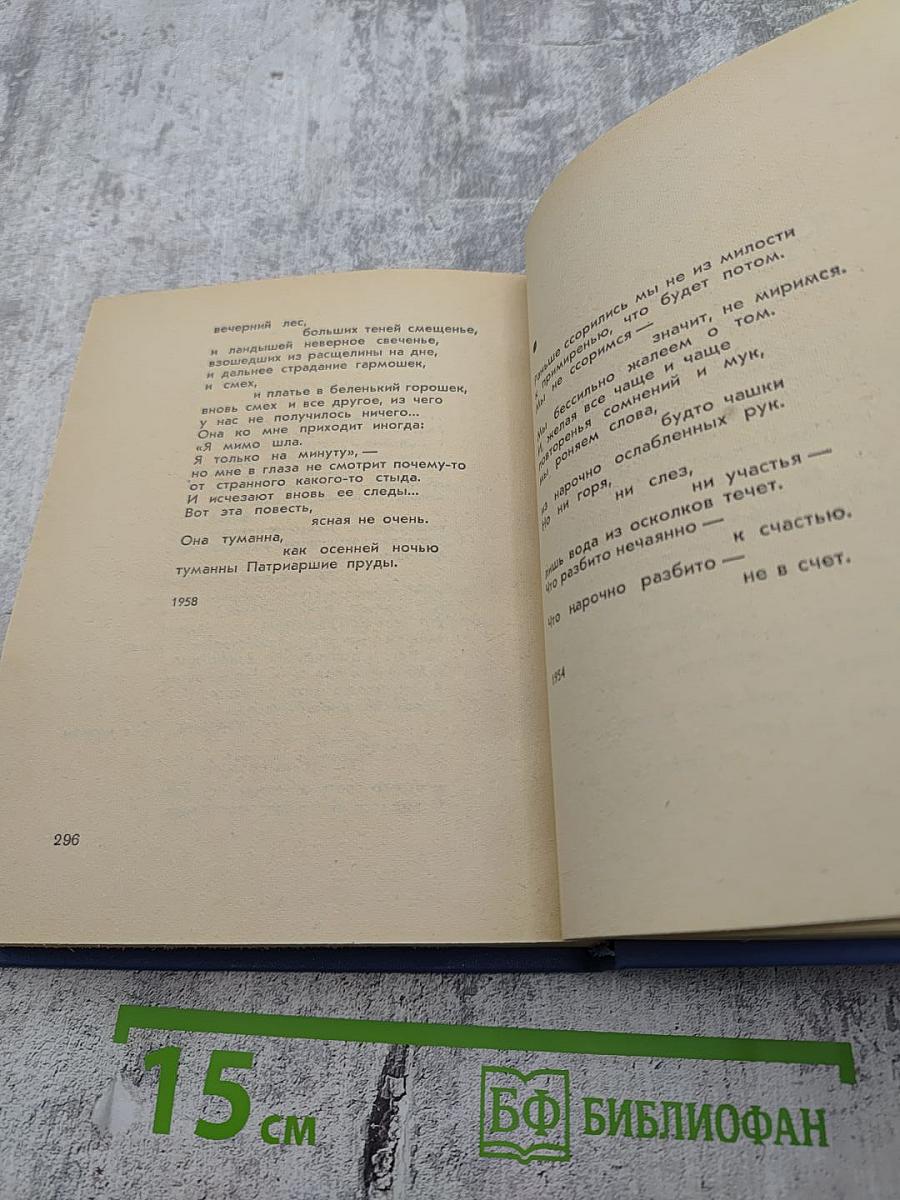 вечерний лес,
больших теней смещенье,
и ландышей неверное свеченье,
взошедших из расщелины на дне,
и дальнее страдание гармошек,
и смех,
и платье в беленький горошек,
вновь смех и все другое, из чего
у нас не получилось ничего...
Она ко мне приходит иногда:
«Я мимо шла.
Я только на минуту», —
но мне в глаза не смотрит почему-то
от странного какого-то стыда.
И исчезают вновь ее следы...
Вот эта повесть,
ясная не очень.
Она туманна,
как осенней ночью
туманны Патриаршие пруды.
1958
296
ссорились мы не из милости
примиренью, что будет потом.
Мы не ссоримся —
значит, не миримся.
Мы бессильно жалеем о том.
И желая все чаще и чаще
повторенья сомнений и мук,
мы роняем слова,
будто чашки
из нарочно ослабленных рук.
Но ни горя,
ни слез,
ни участья —
лишь вода из осколков течет.
Что разбито нечаянно —
к счастью.
Что нарочно разбито —
не в счет.
1954
15 см
БФ БИБЛИОФАН